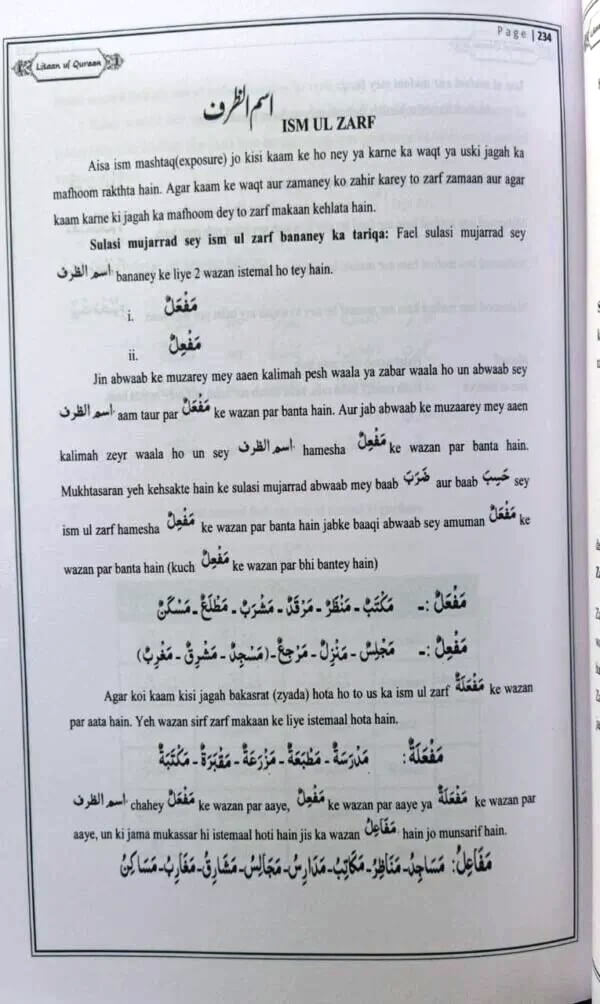 Page | 234
Lisaan ul Quraan
اسم الظرف ISM UL ZARF
Aisa ism mashtaq(exposure) jo kisi kaam ke ho ney ya karne ka waqt ya uski jagah ka
mafhoom rakthta hain. Agar kaam ke waqt aur zamaney ko zahir karey to zarf zamaan aur agar
kaam karne ki jagah ka mafhoom dey to zarf makaan kehlata hain.
Sulasi mujarrad sey ism ul zarf bananey ka tariqa: Fael sulasi mujarrad sey
اسم الظرف bananey ke liye 2 wazan istemal ho tey hain.
i. مَفْعَلٌ
ii. مَفْعِلٌ
Jin abwaab ke muzarey mey aaen kalimah pesh waala ya zabar waala ho un abwaab sey
اسم الظرف aam taur par مَفْعَلٌ ke wazan par banta hain. Aur jab abwaab ke muzaarey mey aaen
kalimah zeyr waala ho un sey اسم الظرف hamesha مَفْعِلٌ ke wazan par banta hain.
Mukhtasaran yeh kehsakte hain ke sulasi mujarrad abwaab mey baab ضَرَبَ aur baab حَسِبَ sey
ism ul zarf hamesha مَفْعِلٌ ke wazan par banta hain jabke baaqi abwaab sey amuman مَفْعَلٌ ke
wazan par banta hain (kuch مَفْعِلٌ ke wazan par bhi bantey hain)
مَفْعَلٌ :ـ مَكْتَبٌ ـ مَنْظَرٌ ـ مَرْقَدٌ ـ مَشْرَبٌ ـ مَطْلَعٌ ـ مَسْكَنٌ
مَفْعِلٌ :ـ مَجْلِسٌ ـ مَنْزِلٌ ـ مَرْجِعٌ ـ (مَسْجِدٌ ـ مَشْرِقٌ ـ مَغْرِبٌ)
Agar koi kaam kisi jagah bakasrat (zyada) hota ho to us ka ism ul zarf مَفْعَلَةٌ ke wazan
par aata hain. Yeh wazan sirf zarf makaan ke liye istemaal hota hain.
مَفْعَلَةٌ : مَدْرَسَةٌ ـ مَطْبَعَةٌ ـ مَزْرَعَةٌ ـ مَقْبَرَةٌ ـ مَكْتَبَةٌ
اسم الظرف chahey مَفْعَلٌ ke wazan par aaye, مَفْعِلٌ ke wazan par aaye ya مَفْعَلَةٌ ke wazan par
aaye, un ki jama mukassar hi istemaal hoti hain jis ka wazan مَفَاعِلُ hain jo munsarif hain.
مَفَاعِلُ: مَسَاجِدُ ـ مَنَاظِرُ ـ مَكَاتِبُ ـ مَدَارِسُ ـ مَجَالِسُ ـ مَشَارِقُ ـ مَغَارِبُ ـ مَسَاكِنُ